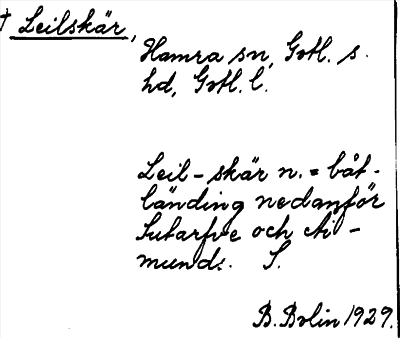 † Leilskär,
Hamra sn, Gotl. s.
hd, Gotl. l.
Leil-skär n. = båt-
länding nedanför
Sutarfve och Ai-
munds. S.
B. Bolin 1929.